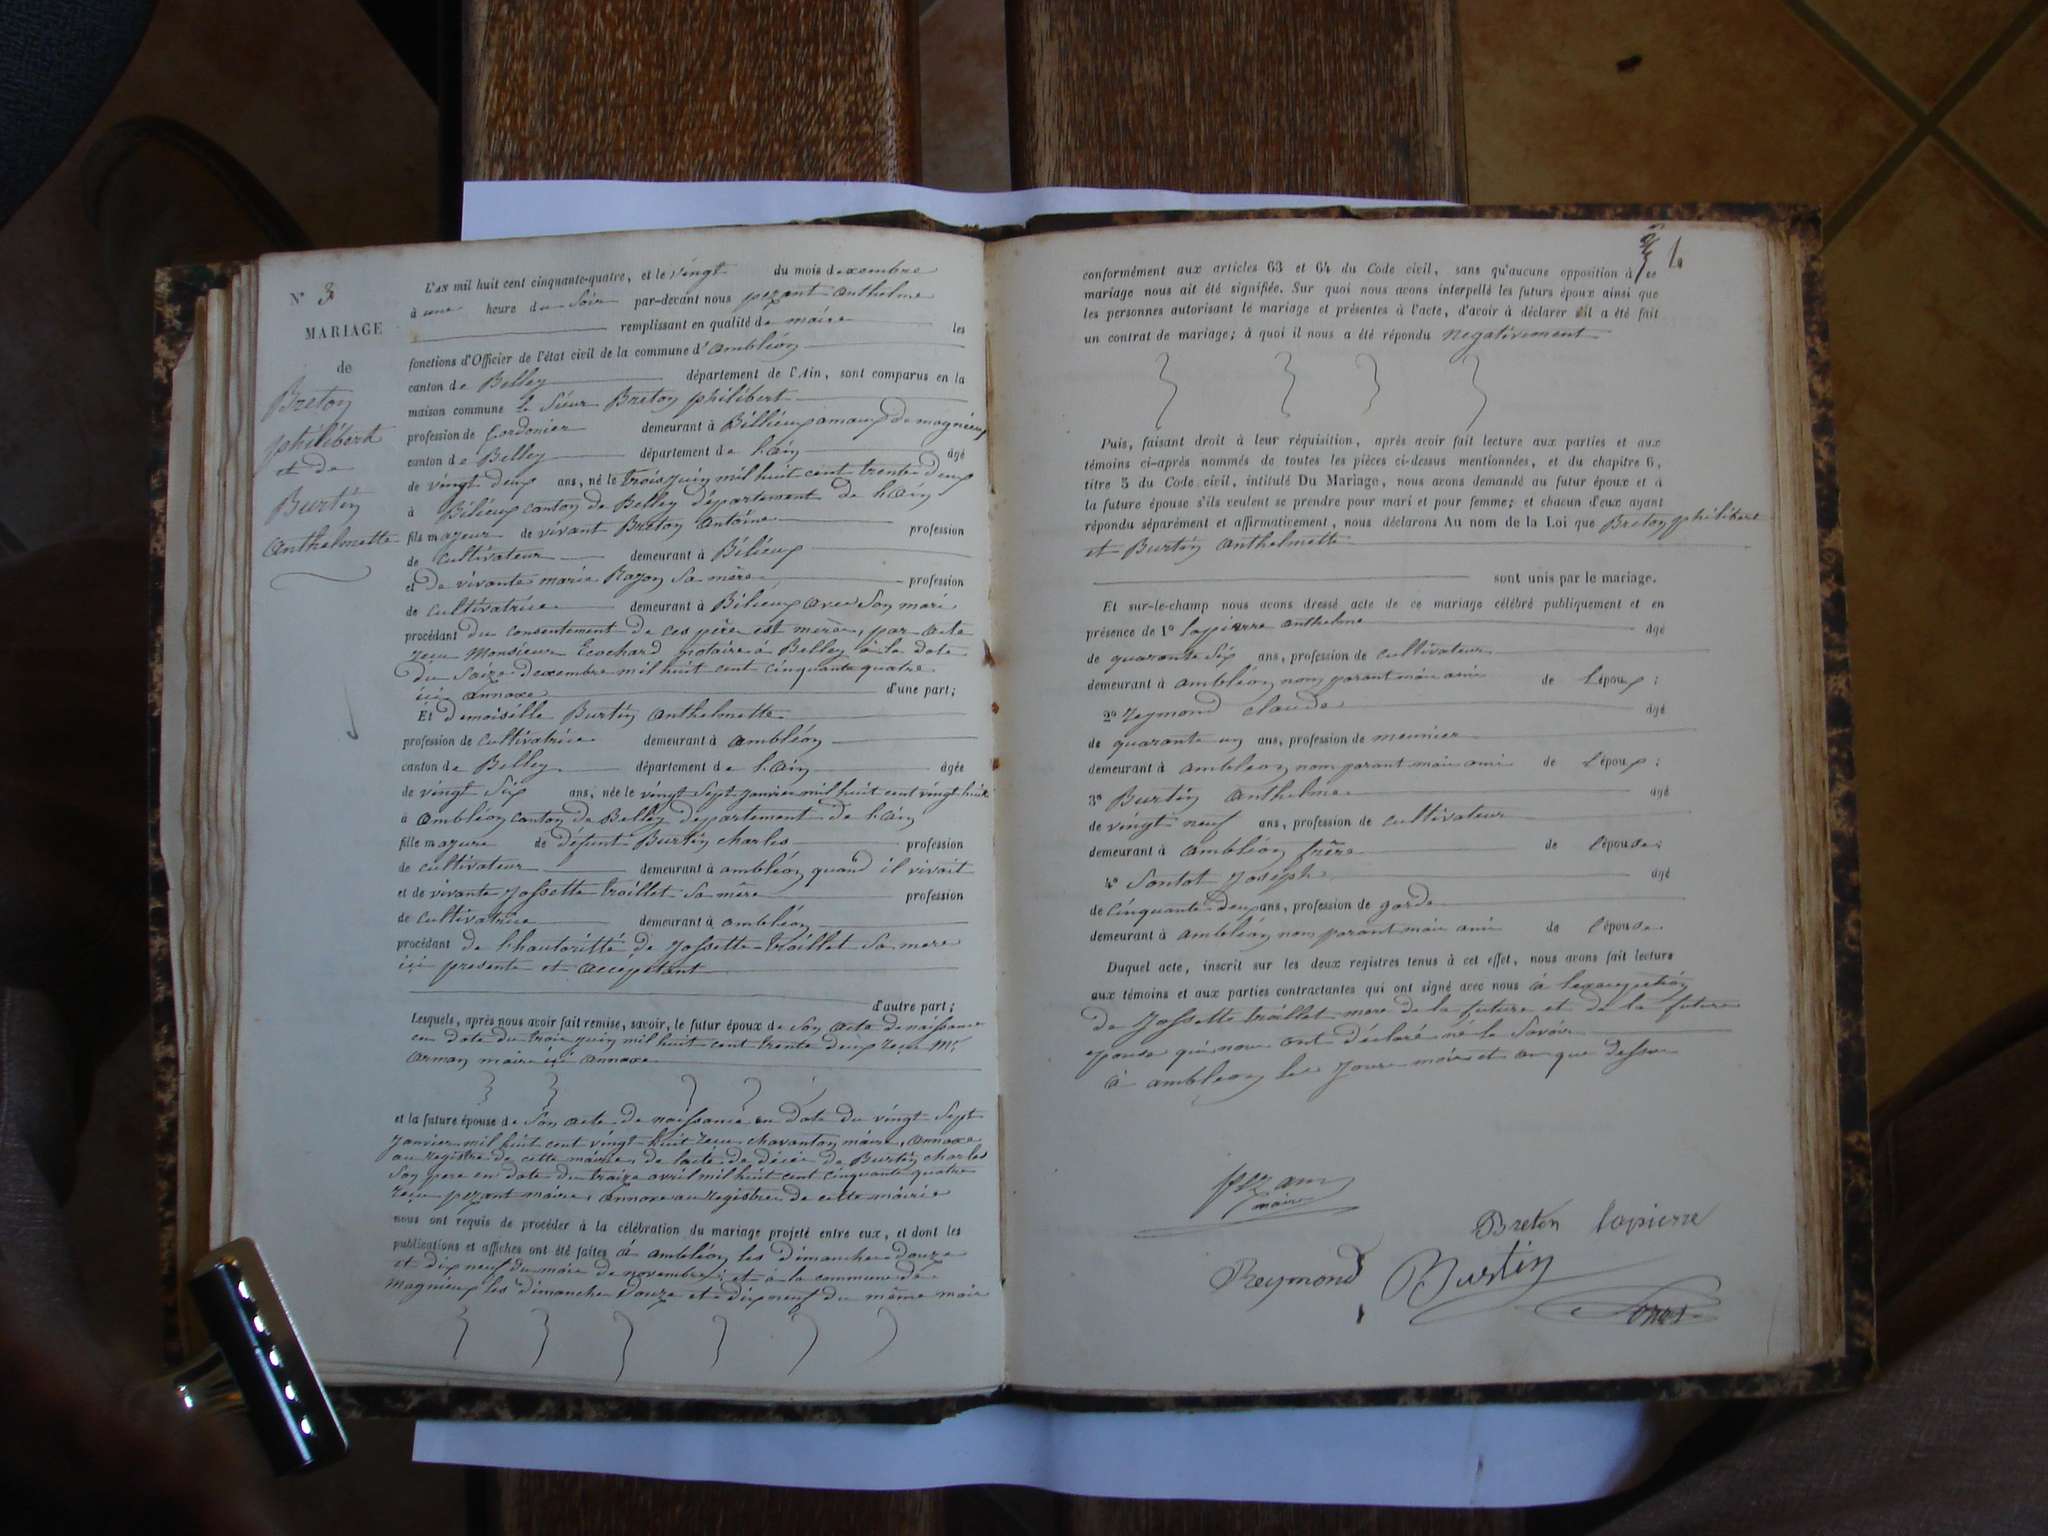 N° 3
MARIAGE
de
Breton
philibert
et de
Burtin
anthelmette
L'AN mil huit cent cinquante-quatre, et le vingt du mois dexembre
à une heure du Soir par-devant nous pezant anthelme
remplissant en qualité de maire les
fonctions d'Officier de l'état civil de la commune d'ambléon
canton de Belley département de l'Ain, sont comparus en la
maison commune le Sieur Breton philibert
profession de Cordonier demeurant à Billieux de magnieux
canton de Belley département de l'ain âgé
de vingt deux ans, né le trois juin mil huit cent trente deux
à Bélieux canton de Belley département de l'ain
fils majeur de vivant Breton Antoine profession
de Cultivateur demeurant à Bélieux
et de vivante marie Rayon Sa mère profession
de cultivatrice demeurant à Bélieux avec Son mari
procédant du consentement de ces père est mère, par acte
reçu Monsieur Ecochard notaire à Belley à la date
du Saize dexembre mil huit cent cinquante quatre
ici annaxe d'une part;
Et demoiselle Burtin anthelmette
profession de cultivatrice demeurant à ambléon
canton de Belley département de l'ain âgée
de vingt Six ans, née le vingt Sept janvier mil huit cent vingt huit
à ambléon canton de Belley département de l'ain
fille mazure de défunt Burtin charles profession
de cultivateur demeurant à ambléon quand il vivait
et de vivante jossette traillet Sa mère profession
de cultivatrice demeurant à ambléon
procédant de l'hautoritté de jossette traillet Sa mere
ici presente et acceptant
d'autre part;
Lesquels, après nous avoir fait remise, savoir, le futur époux de Son acte de naissance
en date du trois juin mil huit cent trente deux reçu Mr
arman maire ici annaxe
et la future épouse de Son acte de naissance en date du vingt Sept
janvier mil huit cent vingt huit reçu chavanton maire, annaxe
au registre de cette mairie, de l'acte de décée de Burtin charles
Son pere en date du traize avril mil huit cent cinquante quatre
reçu pezant maire, annaxe au registre de cette mairie
nous ont requis de procéder à la célébration du mariage projeté entre eux, et dont les
publications et affiches ont été faites à ambléon les dimanche douze
et dix neuf du mois de novembre, et à la commune de
Magnieux les dimanche douze et dix neuf du même mois
conformément aux articles 63 et 64 du Code civil, sans qu'aucune opposition à ce
mariage nous ait été signifiée. Sur quoi nous avons interpellé les futurs époux ainsi que
les personnes autorisant le mariage et présentes à l'acte, d'avoir à déclarer s'il a été fait
un contrat de mariage; à quoi il nous a été répondu negativement
Puis, faisant droit à leur réquisition, après avoir fait lecture aux parties et aux
témoins ci-après nommés de toutes les pièces ci-dessus mentionnées, et du chapitre 6,
titre 5 du Code civil, intitulé Du Mariage, nous avons demandé au futur époux et à
la future épouse s'ils veulent se prendre pour mari et pour femme; et chacun d'eux ayant
répondu séparément et affirmativement, nous déclarons Au nom de la Loi que Breton philibert
et Burtin anthelmette
sont unis par le mariage.
Et sur-le-champ nous avons dressé acte de ce mariage célébré publiquement et en
présence de 1° lapierre anthelme âgé
de quarante Six ans, profession de cultivateur
demeurant à ambléon non parant mais ami de l'époux;
2° reymond claude âgé
de quarante un ans, profession de meunier
demeurant à ambléon non parant mais ami de l'époux;
3° Burtin anthelme âgé
de vingt neuf ans, profession de cultivateur
demeurant à ambléon frère de l'épouse;
4° Sontot joséph âgé
de cinquante deux ans, profession de garde
demeurant à ambléon non parant mais ami de l'épouse
Duquel acte, inscrit sur les deux registres tenus à cet effet, nous avons fait lecture
aux témoins et aux parties contractantes qui ont signé avec nous à
de jossette traillet mere de la future et de la future
epouse qui nous ont déclaré né le Savoir
à ambléon les jours mois et an que dessus
maire
Breton lapierre
Reymond Burtin